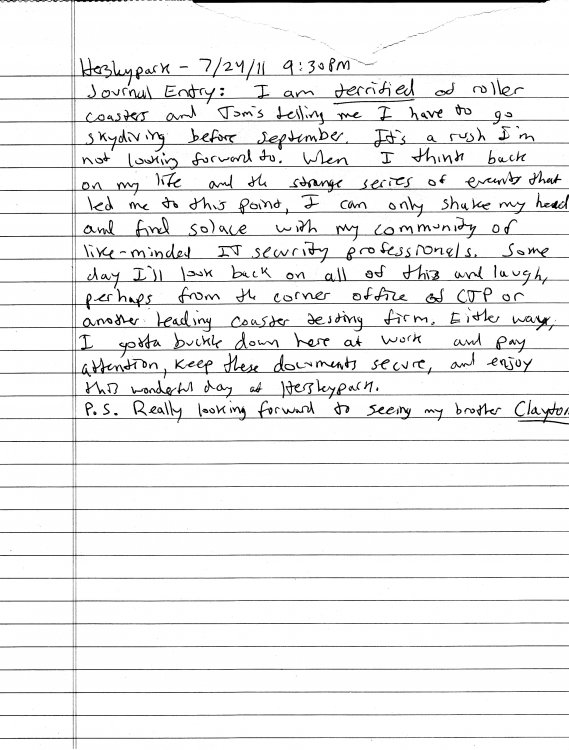 Hersheypark - 7/24/11 9:30PM
Journal Entry: I am terrified of roller
coasters and Tom's telling me I have to go
skydiving before September. It's a rush I'm
not looking forward to. When I think back
on my life and the strange series of events that
led me to this point, I can only shake my head
and find solace with my community of
like-minded IT security professionals. Some
day I'll look back on all of this and laugh,
perhaps from the corner office of CTP or
another leading coaster testing firm. Either way,
I gotta buckle down here at work and pay
attention, keep these documents secure, and enjoy
this wonderful day at Hersheypark.
P.S. Really looking forward to seeing my brother Clayton